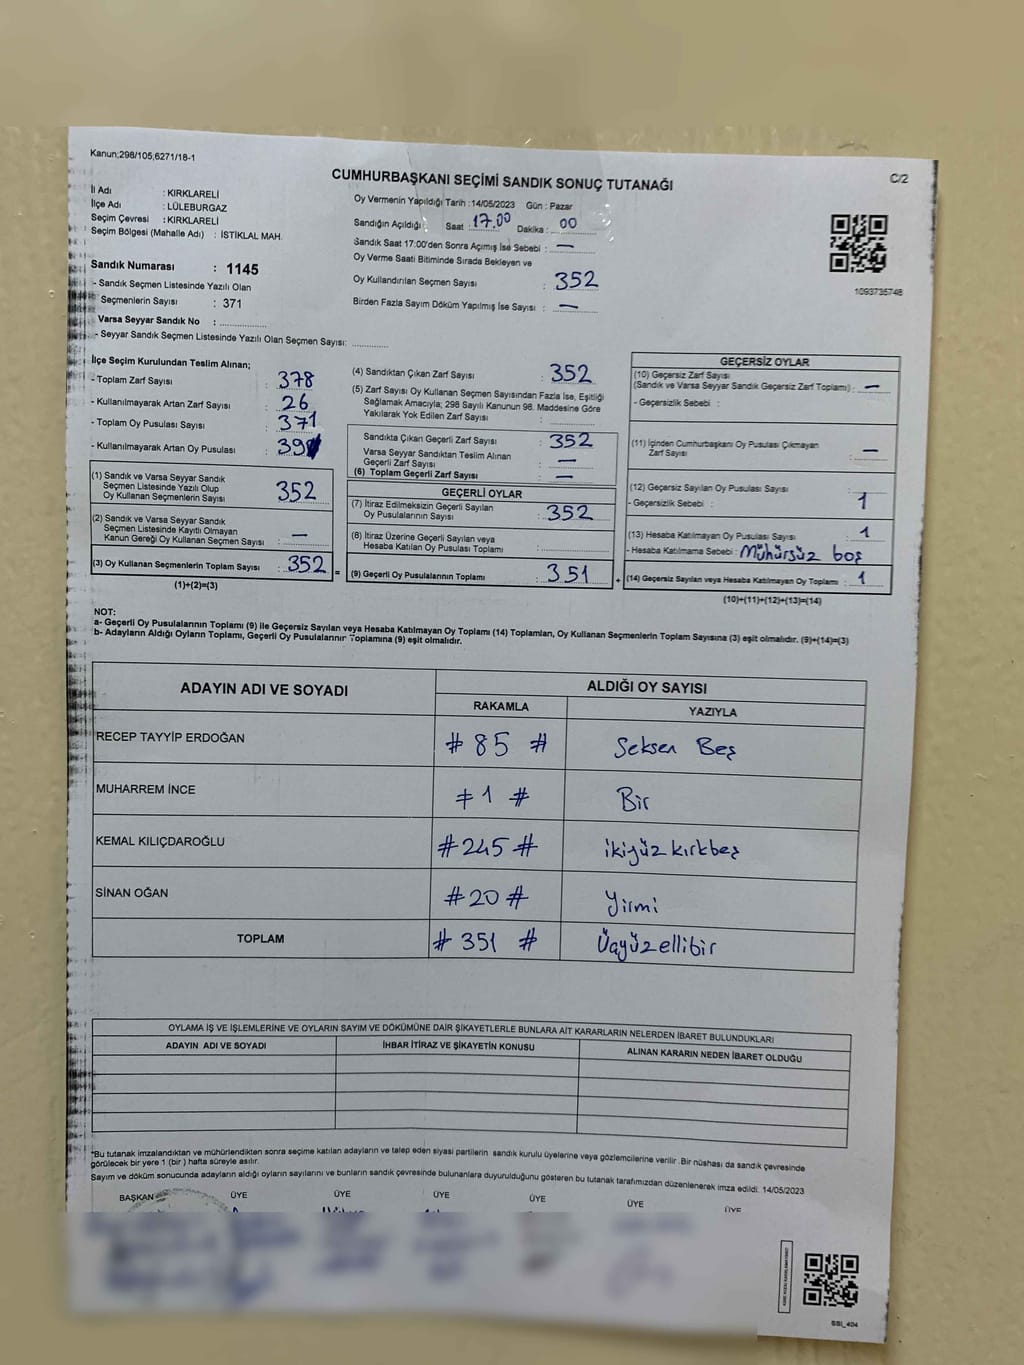 Kanun;298/105,6271/18-1
C/2
CUMHURBAŞKANI SEÇİMİ SANDIK SONUÇ TUTANAĞI
İl Adı : KIRKLARELİ
İlçe Adı : LÜLEBURGAZ
Seçim Çevresi : KIRKLARELİ
Seçim Bölgesi (Mahalle Adı) : İSTİKLAL MAH.
Sandık Numarası : 1145
- Sandık Seçmen Listesinde Yazılı Olan
Seçmenlerin Sayısı : 371
Varsa Seyyar Sandık No :
- Seyyar Sandık Seçmen Listesinde Yazılı Olan Seçmen Sayısı:
Oy Vermenin Yapıldığı Tarih :14/05/2023 Gün : Pazar
Sandığın Açıldığı Saat : 17.00 Dakika : 00
Sandık Saat 17:00'den Sonra Açımış İse Sebebi : —
Oy Verme Saati Bitiminde Sırada Bekleyen ve
Oy Kullandırılan Seçmen Sayısı : 352
Birden Fazla Sayım Döküm Yapılmış İse Sayısı : —
1093735748
İlçe Seçim Kurulundan Teslim Alınan;
- Toplam Zarf Sayısı : 378
- Kullanılmayarak Artan Zarf Sayısı : 26
- Toplam Oy Pusulası Sayısı : 371
- Kullanılmayarak Artan Oy Pusulası : 39
(1) Sandık ve Varsa Seyyar Sandık
Seçmen Listesinde Yazılı Olup
Oy Kullanan Seçmenlerin Sayısı : 352
(2) Sandık ve Varsa Seyyar Sandık
Seçmen Listesinde Kayıtlı Olmayan
Kanun Gereği Oy Kullanan Seçmen Sayısı : —
(3) Oy Kullanan Seçmenlerin Toplam Sayısı : 352 =
(1)+(2)=(3)
(4) Sandıktan Çıkan Zarf Sayısı : 352
(5) Zarf Sayısı Oy Kullanan Seçmen Sayısından Fazla İse, Eşitliği
Sağlamak Amacıyla; 298 Sayılı Kanunun 98. Maddesine Göre
Yakılarak Yok Edilen Zarf Sayısı :
Sandıkta Çıkan Geçerli Zarf Sayısı : 352
Varsa Seyyar Sandıktan Teslim Alınan
Geçerli Zarf Sayısı : —
(6) Toplam Geçerli Zarf Sayısı : —
GEÇERLİ OYLAR
(7) İtiraz Edilmeksizin Geçerli Sayılan
Oy Pusulalarının Sayısı : 352
(8) İtiraz Üzerine Geçerli Sayılan veya
Hesaba Katılan Oy Pusulası Toplamı :
(9) Geçerli Oy Pusulalarının Toplamı : 351 +
GEÇERSİZ OYLAR
(10) Geçersiz Zarf Sayısı
(Sandık ve Varsa Seyyar Sandık Geçersiz Zarf Toplamı) : —
- Geçersizlik Sebebi :
(11) İçinden Cumhurbaşkanı Oy Pusulası Çıkmayan
Zarf Sayısı : —
(12) Geçersiz Sayılan Oy Pusulası Sayısı :
- Geçersizlik Sebebi : 1
(13) Hesaba Katılmayan Oy Pusulası Sayısı : 1
- Hesaba Katılmama Sebebi : Mühürsüz boş
(14) Geçersiz Sayılan veya Hesaba Katılmayan Oy Toplamı : 1
(10)+(11)+(12)+(13)=(14)
NOT:
a- Geçerli Oy Pusulalarının Toplamı (9) ile Geçersiz Sayılan veya Hesaba Katılmayan Oy Toplamı (14) Toplamları, Oy Kullanan Seçmenlerin Toplam Sayısına (3) eşit olmalıdır. (9)+(14)=(3)
b- Adayların Aldığı Oyların Toplamı, Geçerli Oy Pusulalarının Toplamına (9) eşit olmalıdır.
ADAYIN ADI VE SOYADI ALDIĞI OY SAYISI
RAKAMLA YAZIYLA
RECEP TAYYİP ERDOĞAN # 85 # Seksen Beş
MUHARREM İNCE # 1 # Bir
KEMAL KILIÇDAROĞLU # 245 # ikiyüz kırkbeş
SİNAN OĞAN # 20 # Yirmi
TOPLAM # 351 # Üçyüzellibir
OYLAMA İŞ VE İŞLEMLERİNE VE OYLARIN SAYIM VE DÖKÜMÜNE DAİR ŞİKAYETLERLE BUNLARA AİT KARARLARIN NELERDEN İBARET BULUNDUKLARI
ADAYIN ADI VE SOYADI İHBAR İTİRAZ VE ŞİKAYETİN KONUSU ALINAN KARARIN NEDEN İBARET OLDUĞU
*Bu tutanak imzalandıktan ve mühürlendikten sonra seçime katılan adayların ve talep eden siyasi partilerin sandık kurulu üyelerine veya gözlemcilerine verilir .Bir nüshası da sandık çevresinde
görülecek bir yere 1 (bir ) hafta süreyle asılır.
Sayım ve döküm sonucunda adayların aldığı oyların sayılarını ve bunların sandık çevresinde bulunanlara duyurulduğunu gösteren bu tutanak tarafımızdan düzenlenerek imza edildi. 14/05/2023
BAŞKAN ÜYE ÜYE ÜYE ÜYE ÜYE ÜYE
SSI_404